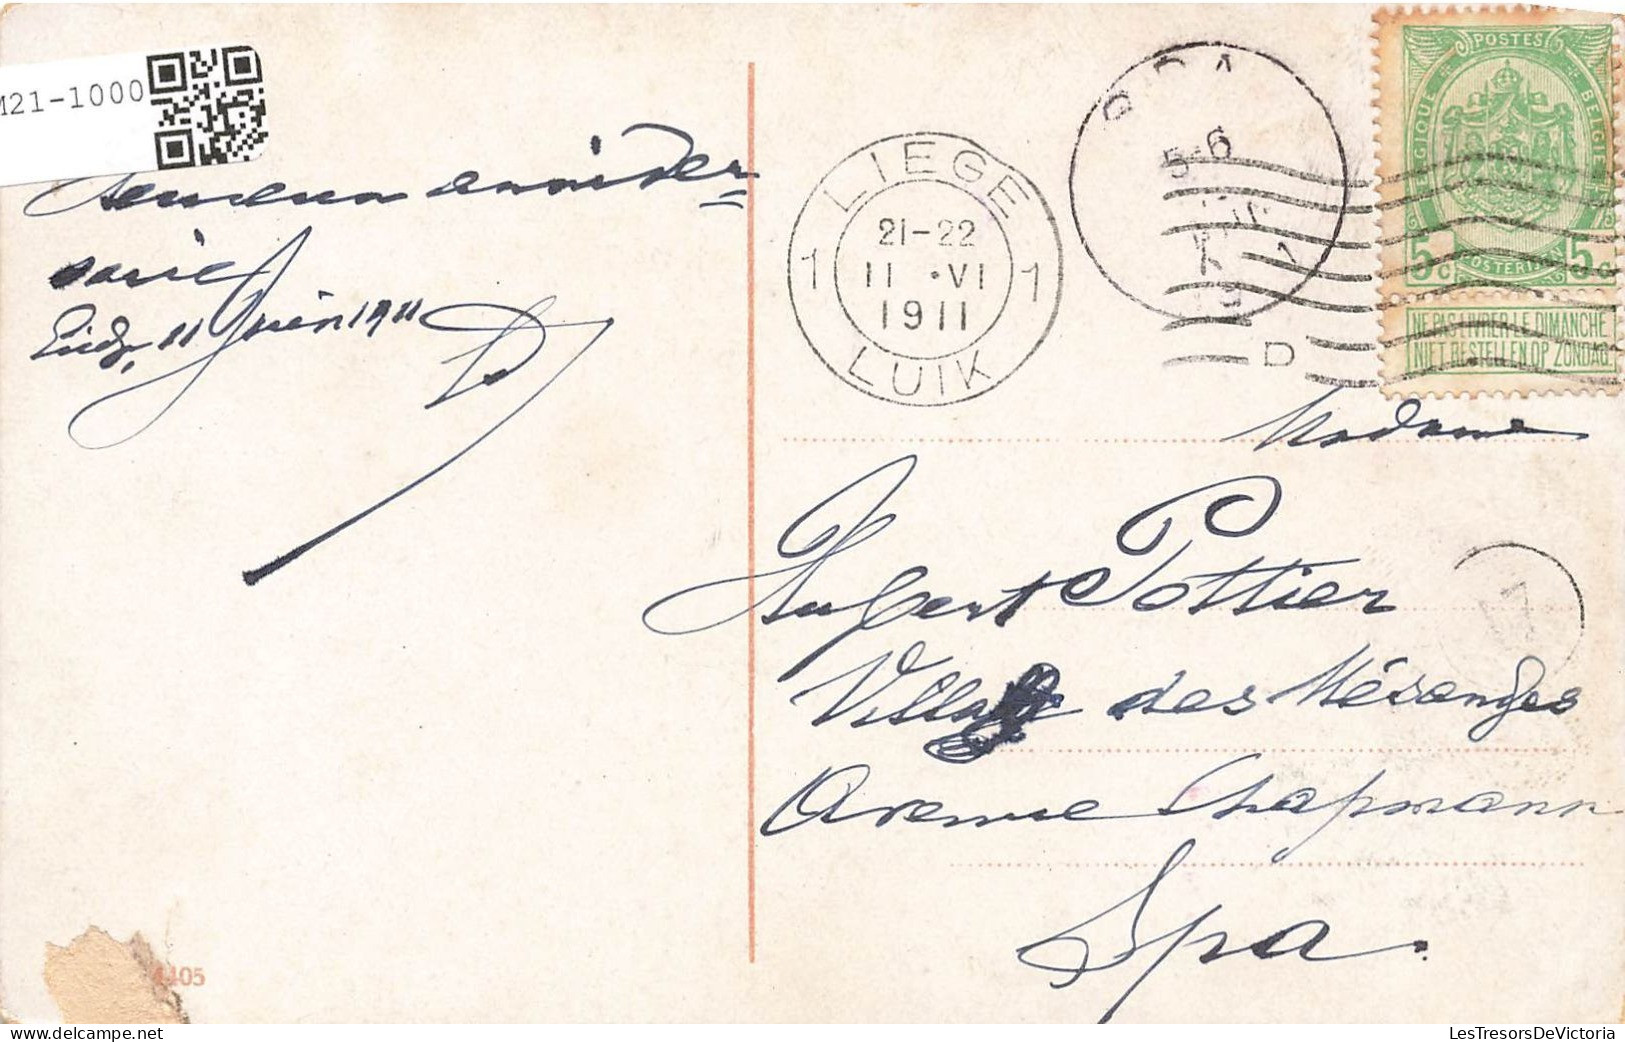 M21-1000
Heureux anniver=
saire
Liège, 11 Juin 1911
LIEGE
1 21-22 1
11 · VI
1911
LUIK
SPA
5-6
D
POSTES
BELGIQUE BELGIË
5c 5c
POSTERIJEN
NE PAS LIVRER LE DIMANCHE
NIET BESTELLEN OP ZONDAG
Madame
Hubert Pottier
Villa des Mésanges
Avenue Chapmann
Spa.
17
4405
LesTresorsDeVictoria